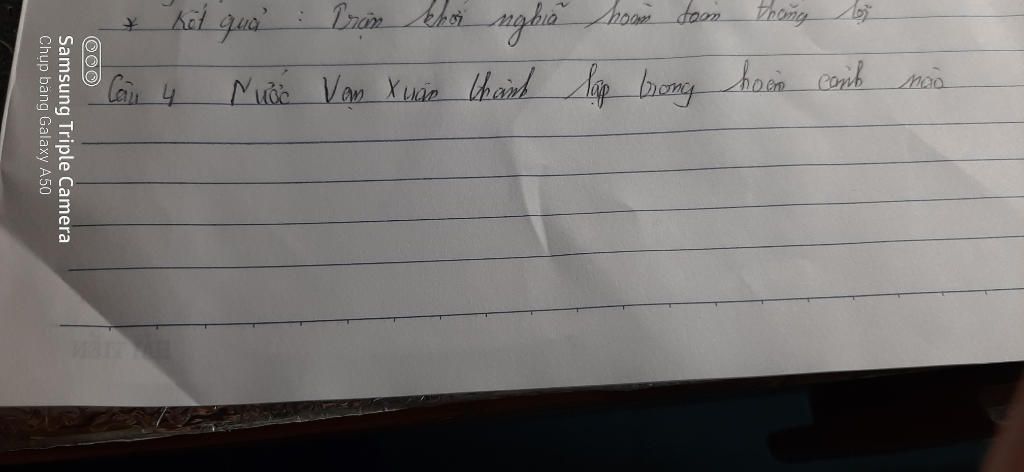 * Kết quả : Trận khởi nghĩa hoàn toàn thắng lợi
Câu 4 Nước Vạn Xuân thành lập trong hoàn cảnh nào
Samsung Triple Camera
Chụp bằng Galaxy A50